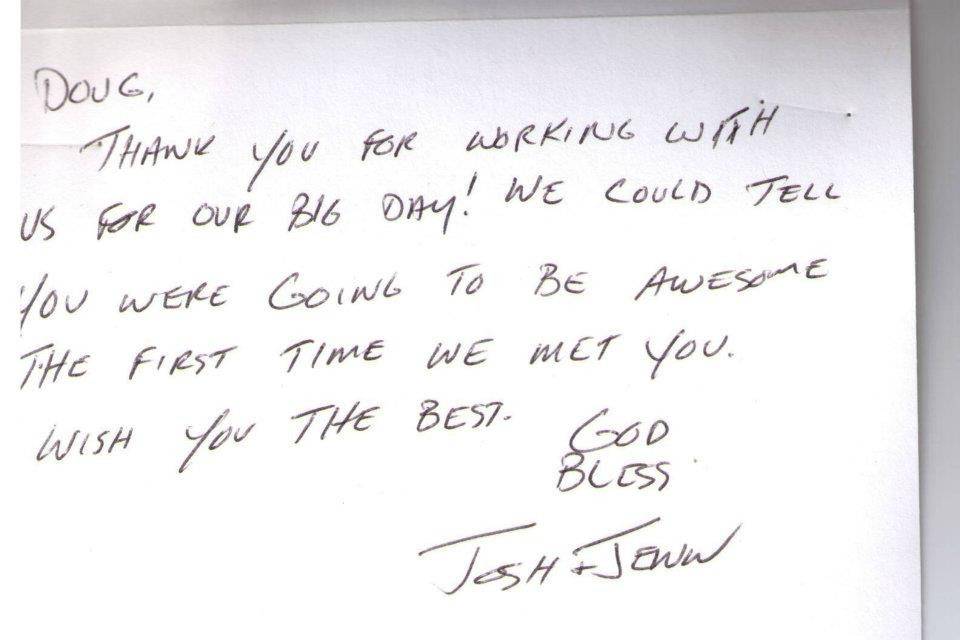 DOUG,
THANK YOU FOR WORKING WITH
US FOR OUR BIG DAY! WE COULD TELL
YOU WERE GOING TO BE AWESOME
THE FIRST TIME WE MET YOU.
WISH YOU THE BEST.
GOD
BLESS
JOSH + JENN